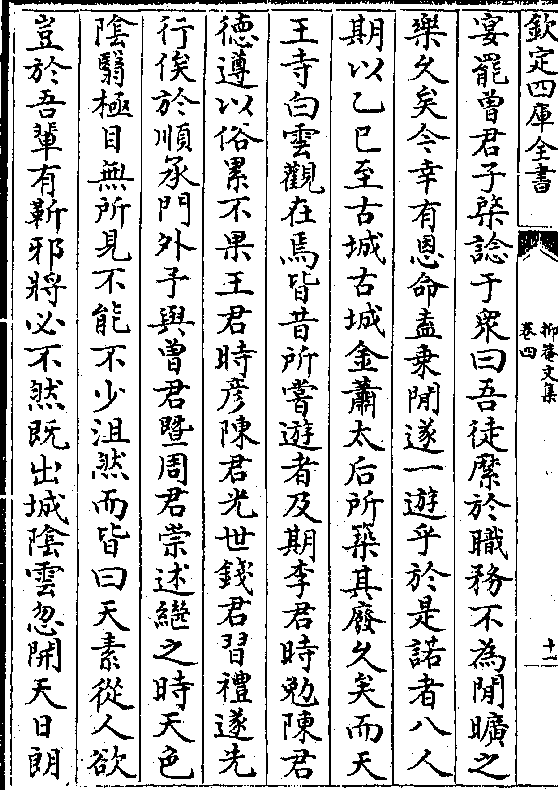 欽定四庫全書
抑菴文集
卷四
十一
宴罷曾君子棨諗于衆曰吾徒縻於職務不為閒曠之
樂久矣今幸有恩命盍乗閒遂一遊乎於是諾者八人
期以乙巳至古城古城金蕭太后所築其廢久矣而天
王寺白雲觀在焉皆昔所嘗遊者及期李君時勉陳君
德遵以俗累不果王君時彦陳君光世錢君習禮遂先
行俟於順承門外予與曾君暨周君崇述繼之時天色
陰翳極目無所見不能不少沮然而皆曰天素從人欲
豈於吾輩有靳邪將必不然既出城陰雲忽開天日朗